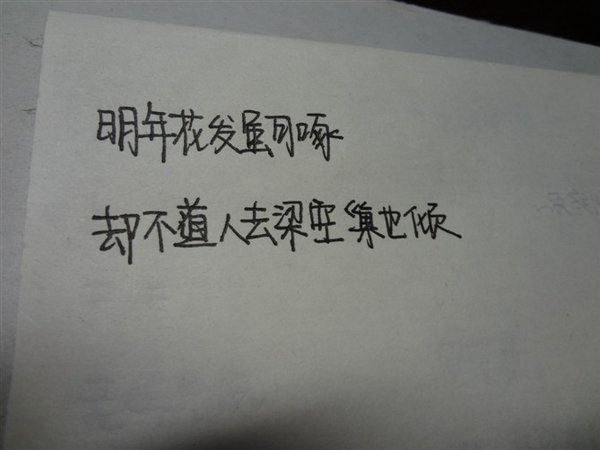 明年花发虽可啄
却不道人去梁空巢也倾